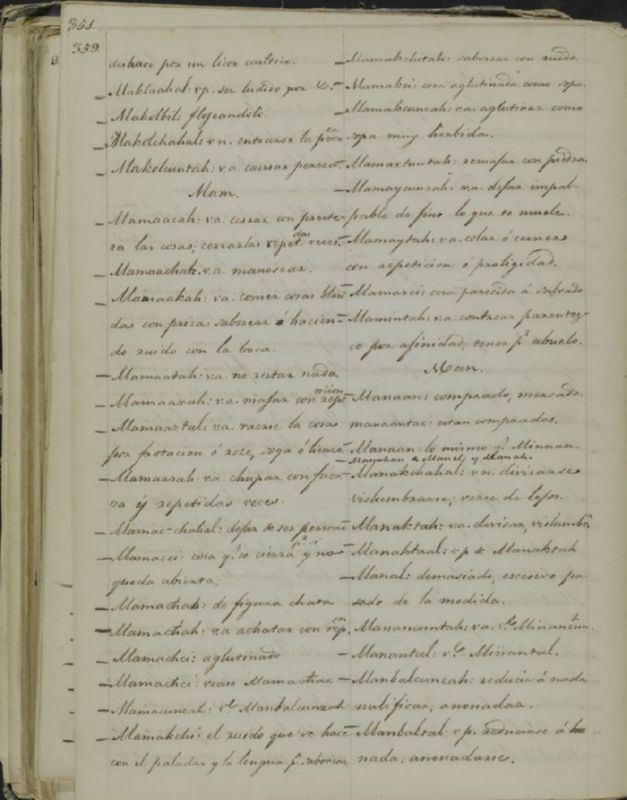 351.
359.
deshace por un licor caustico.
Maklaahal: vp. ser ludido por &.
Makolbil: flojeando
Makolchahal: vn. entrarse la pereza
Makolcuntah: va. causar pereza.
Mam.
Mamaacah: va. cerrar con preste-
za las cosas; cerrarlas repetidas veces.
Mamaachah: va. manosear.
Mamaakah: va. comer cosas blan-
das con priza: saborear ó hacien-
do ruido con la boca.
Mamaatah: va. no restar nada
Mamaaxah: va. majar con repeticion
Mamaaxtul: va. raerse la cosa
por frotacion ó roze, soga ó lienzo.
Mamaazah: va. chupar con fuer-
za y repetidas veces.
Mamac-chahal: dejar de ser persona
Mamacci: cosa q. se cierra p. si y no
queda abierta,
Mamachah: de figura chata
Mamachah: va achatar con rep.
Mamachci: aglutinado
Mamachci: vease Mama
Mamacunzah: v. Manbalcunzah
Mamakchi: el ruido que se hace
con el paladar y la lengua p. saborear
Mamakchitah: saborear con ruido.
Mamakci: cosa aglutinada como sopa.
Mamakcunzah: va. aglutinar como
sopa muy hervida.
Mamaxtuntah: remajar con piedra
Mamaycunzah: va. dejar impal-
pable de fino lo que se muele.
Mamaytah: va. colar ó cerner
con repeticion ó prolijidad.
Mamazci: cosa parecida á salvado
Mamintah: va. contraer parentez-
co por afinidad; tener p. abuelo.
Man.
Manaan: comprado, mercado.
manaantac: estan comprados.
Manaan: lo mismo q. Minaan.
Manahan de Manel y Manah.
Manakchahal: vn. divisarse
vislumbrarse; verse de lejos.
Manaktah: va. divisar, vislumbr.
Manaktaal: vp de Manaktah
Manal: demasiado, escesivo pa-
sado de la medida.
Manancuntah: va. v. Minancun.
Manantal: v. Minantal.
Manbalcunzah: reducir á nada
nulificar, anonadar.
Manbaltal: vp. reducirse á
nada; anonadarse.